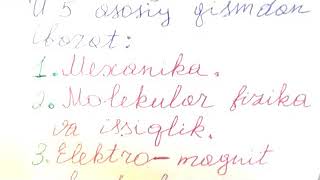 U 5 asosiy qismdan
iborat:
1. Mexanika.
2. Molekular fizika
va issiqlik.
3. Elektro-magnit